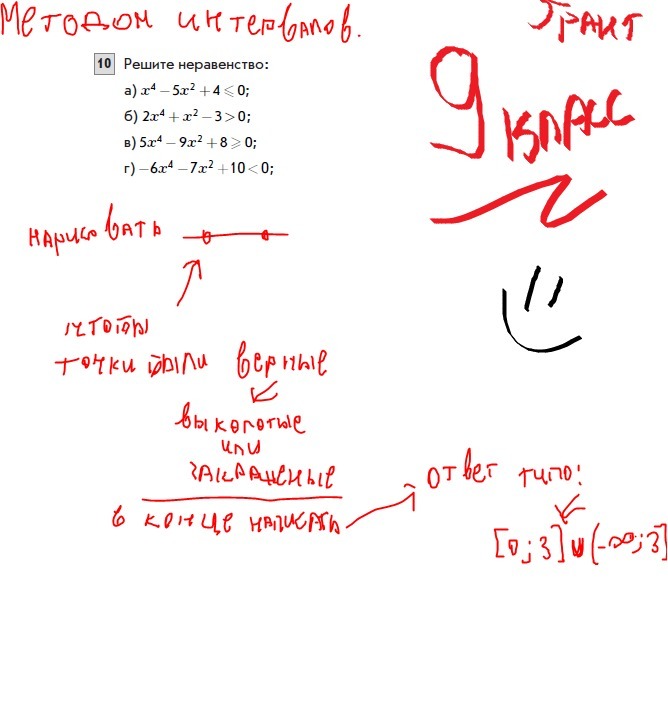 Методом интервалов.
Гракт
9 класс
10 Решите неравенство:
а) x⁴ − 5x² + 4 ⩽ 0;
б) 2x⁴ + x² − 3 > 0;
в) 5x⁴ − 9x² + 8 ⩾ 0;
г) −6x⁴ − 7x² + 10 < 0;
нарисовать
чтобы
точки были верные
выколотые
или
закрашеные
в конце написать
ответ типо:
[0; 3] u (-∞; 3]